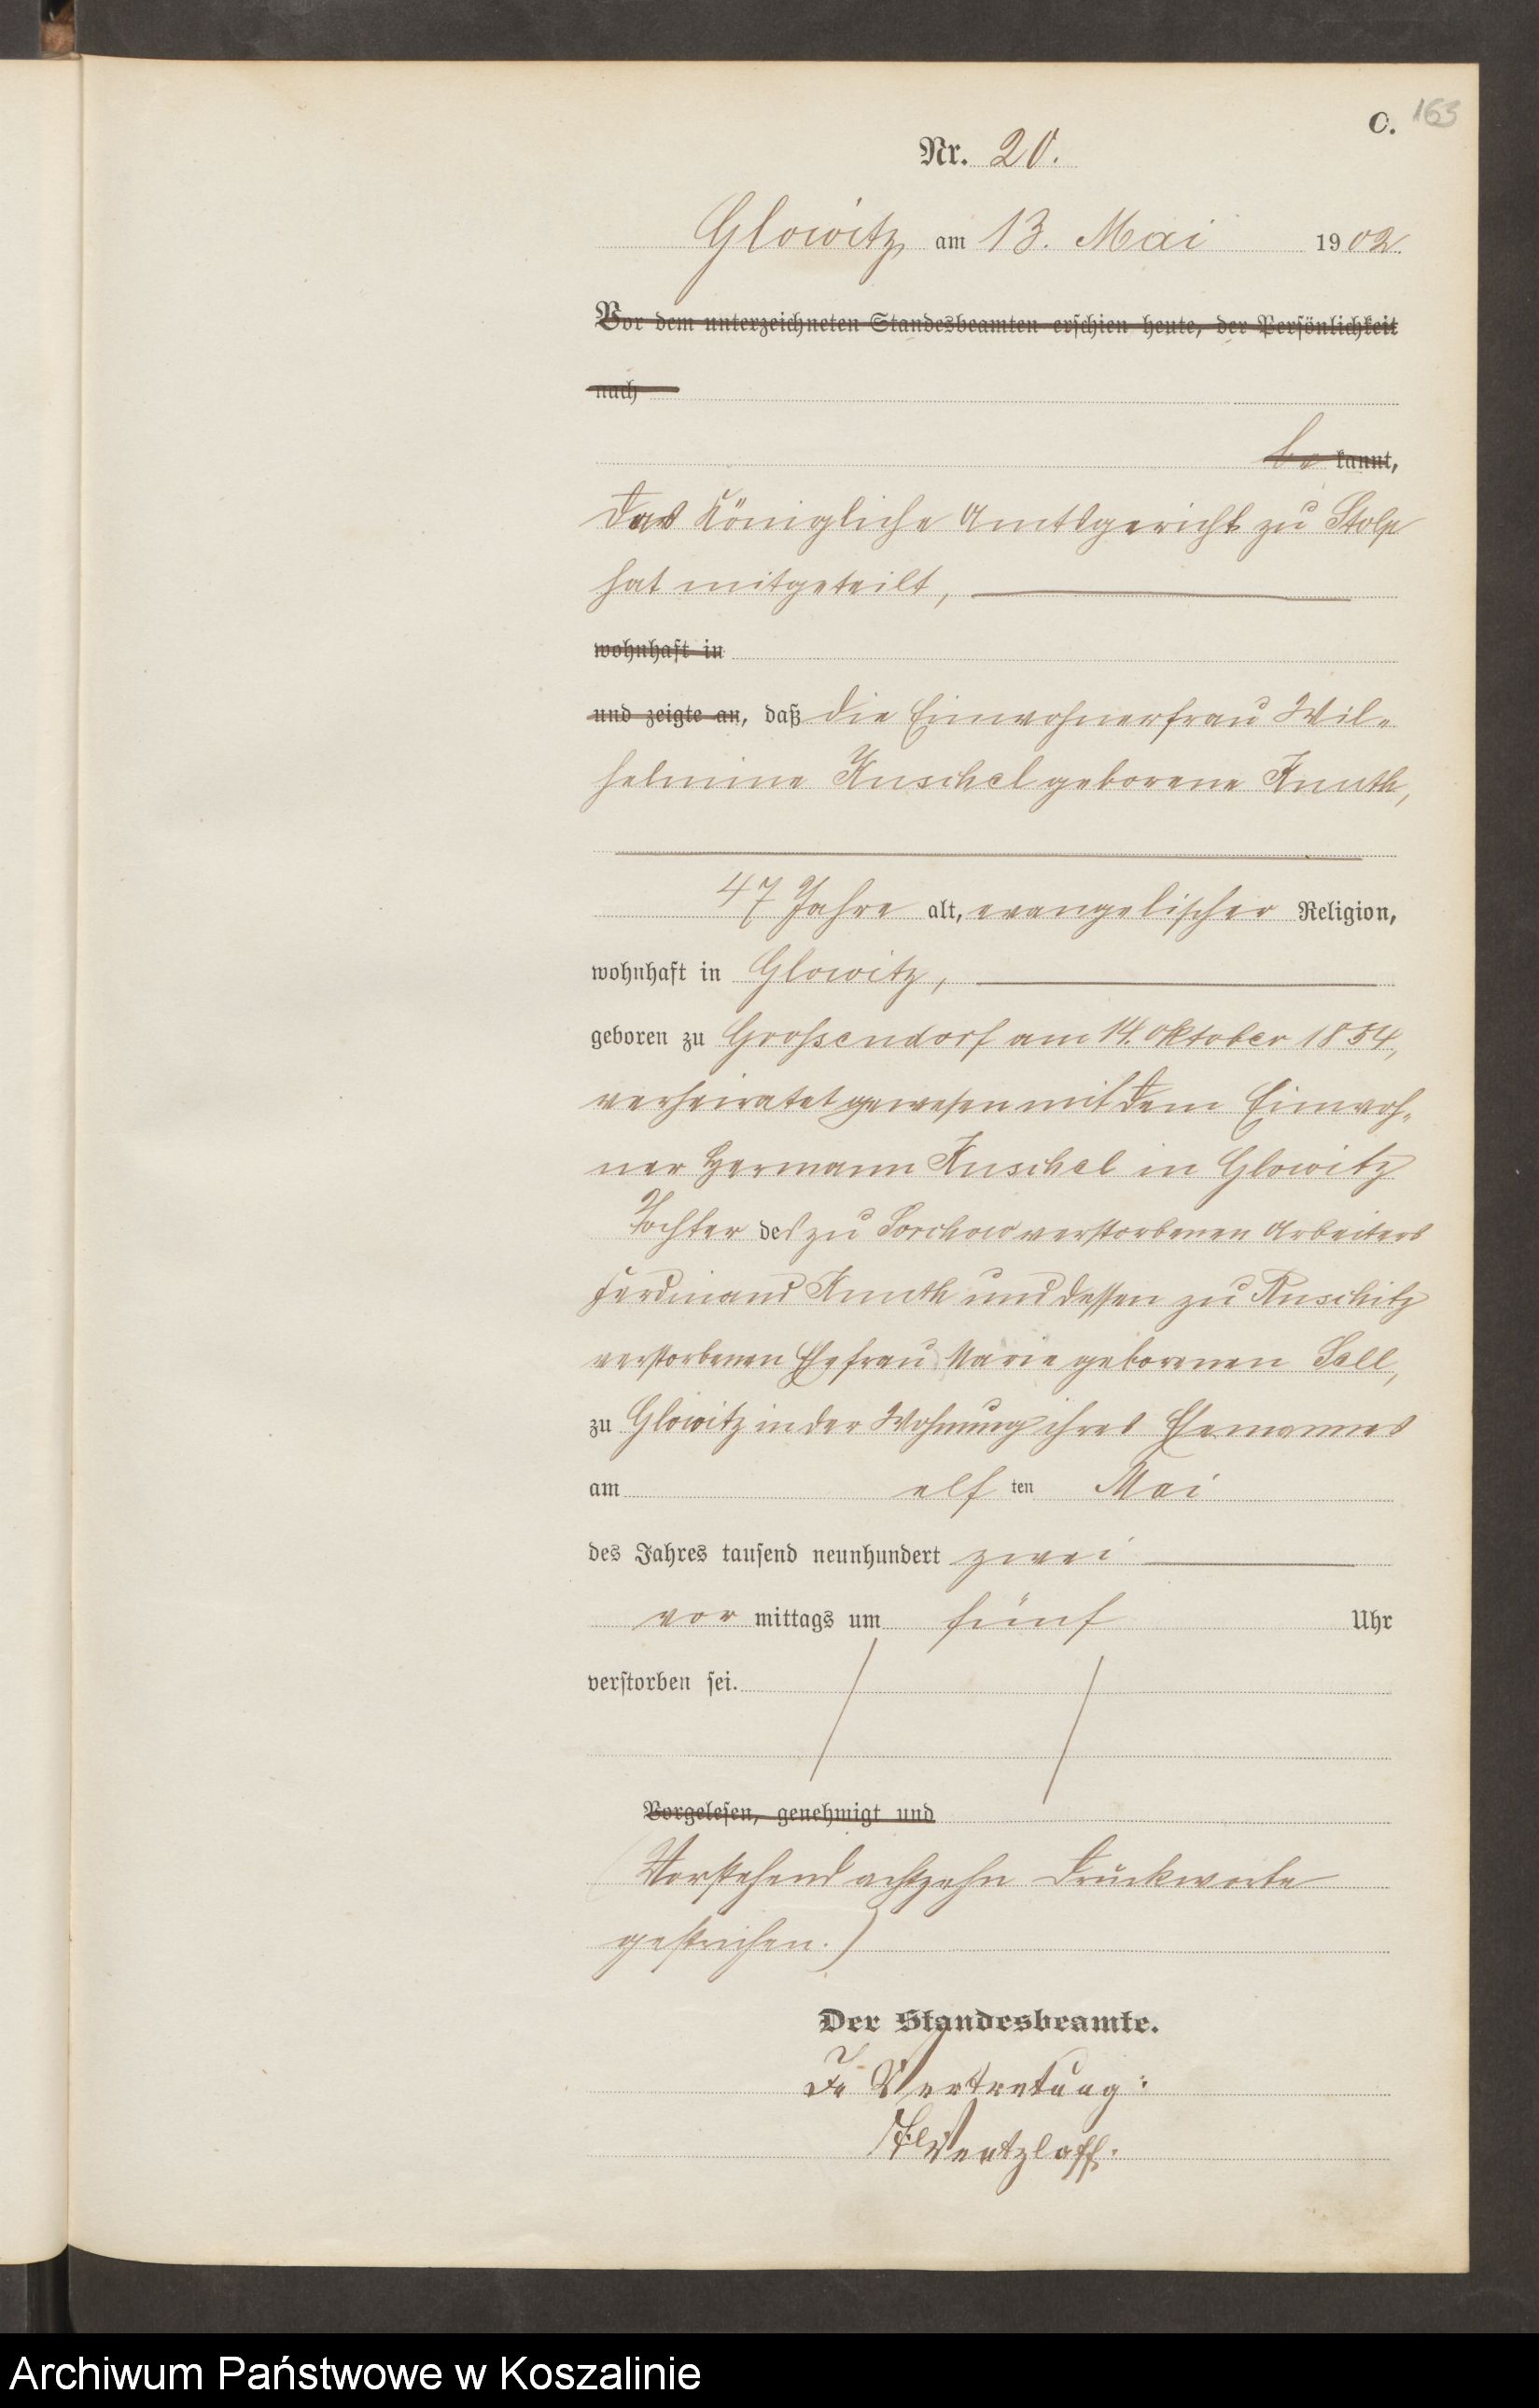 C. 163
Nr. 20.
Glowitz, am 13. Mai 1902.
Vor dem unterzeichneten Standesbeamten erschien heute, der Persönlichkeit
nach
be kannt,
Das Königliche Amtsgericht zu Stolp
hat mitgeteilt,
wohnhaft in
und zeigte an, daß die Einwohnerfrau Wil-
helmine Kuschel geborene Knuth,
47 Jahre alt, evangelischer Religion,
wohnhaft in Glowitz,
geboren zu Großendorf am 14. Oktober 1854,
verheiratet gewesen mit dem Einwoh-
ner Hermann Kuschel in Glowitz
Tochter des zu Sorchow verstorbenen Arbeiters
Ferdinand Knuth und dessen zu Ruschitz
verstorbenen Ehefrau Marie geborenen Sell,
zu Glowitz in der Wohnung ihres Ehemannes
am elf ten Mai
des Jahres tausend neunhundert zwei
vor mittags um fünf Uhr
verstorben sei.
Vorgelesen, genehmigt und
(Vorstehend achtzehn Druckworte
gestrichen.)
Der Standesbeamte.
In Vertretung:
Wentzlaff.
Archiwum Państwowe w Koszalinie